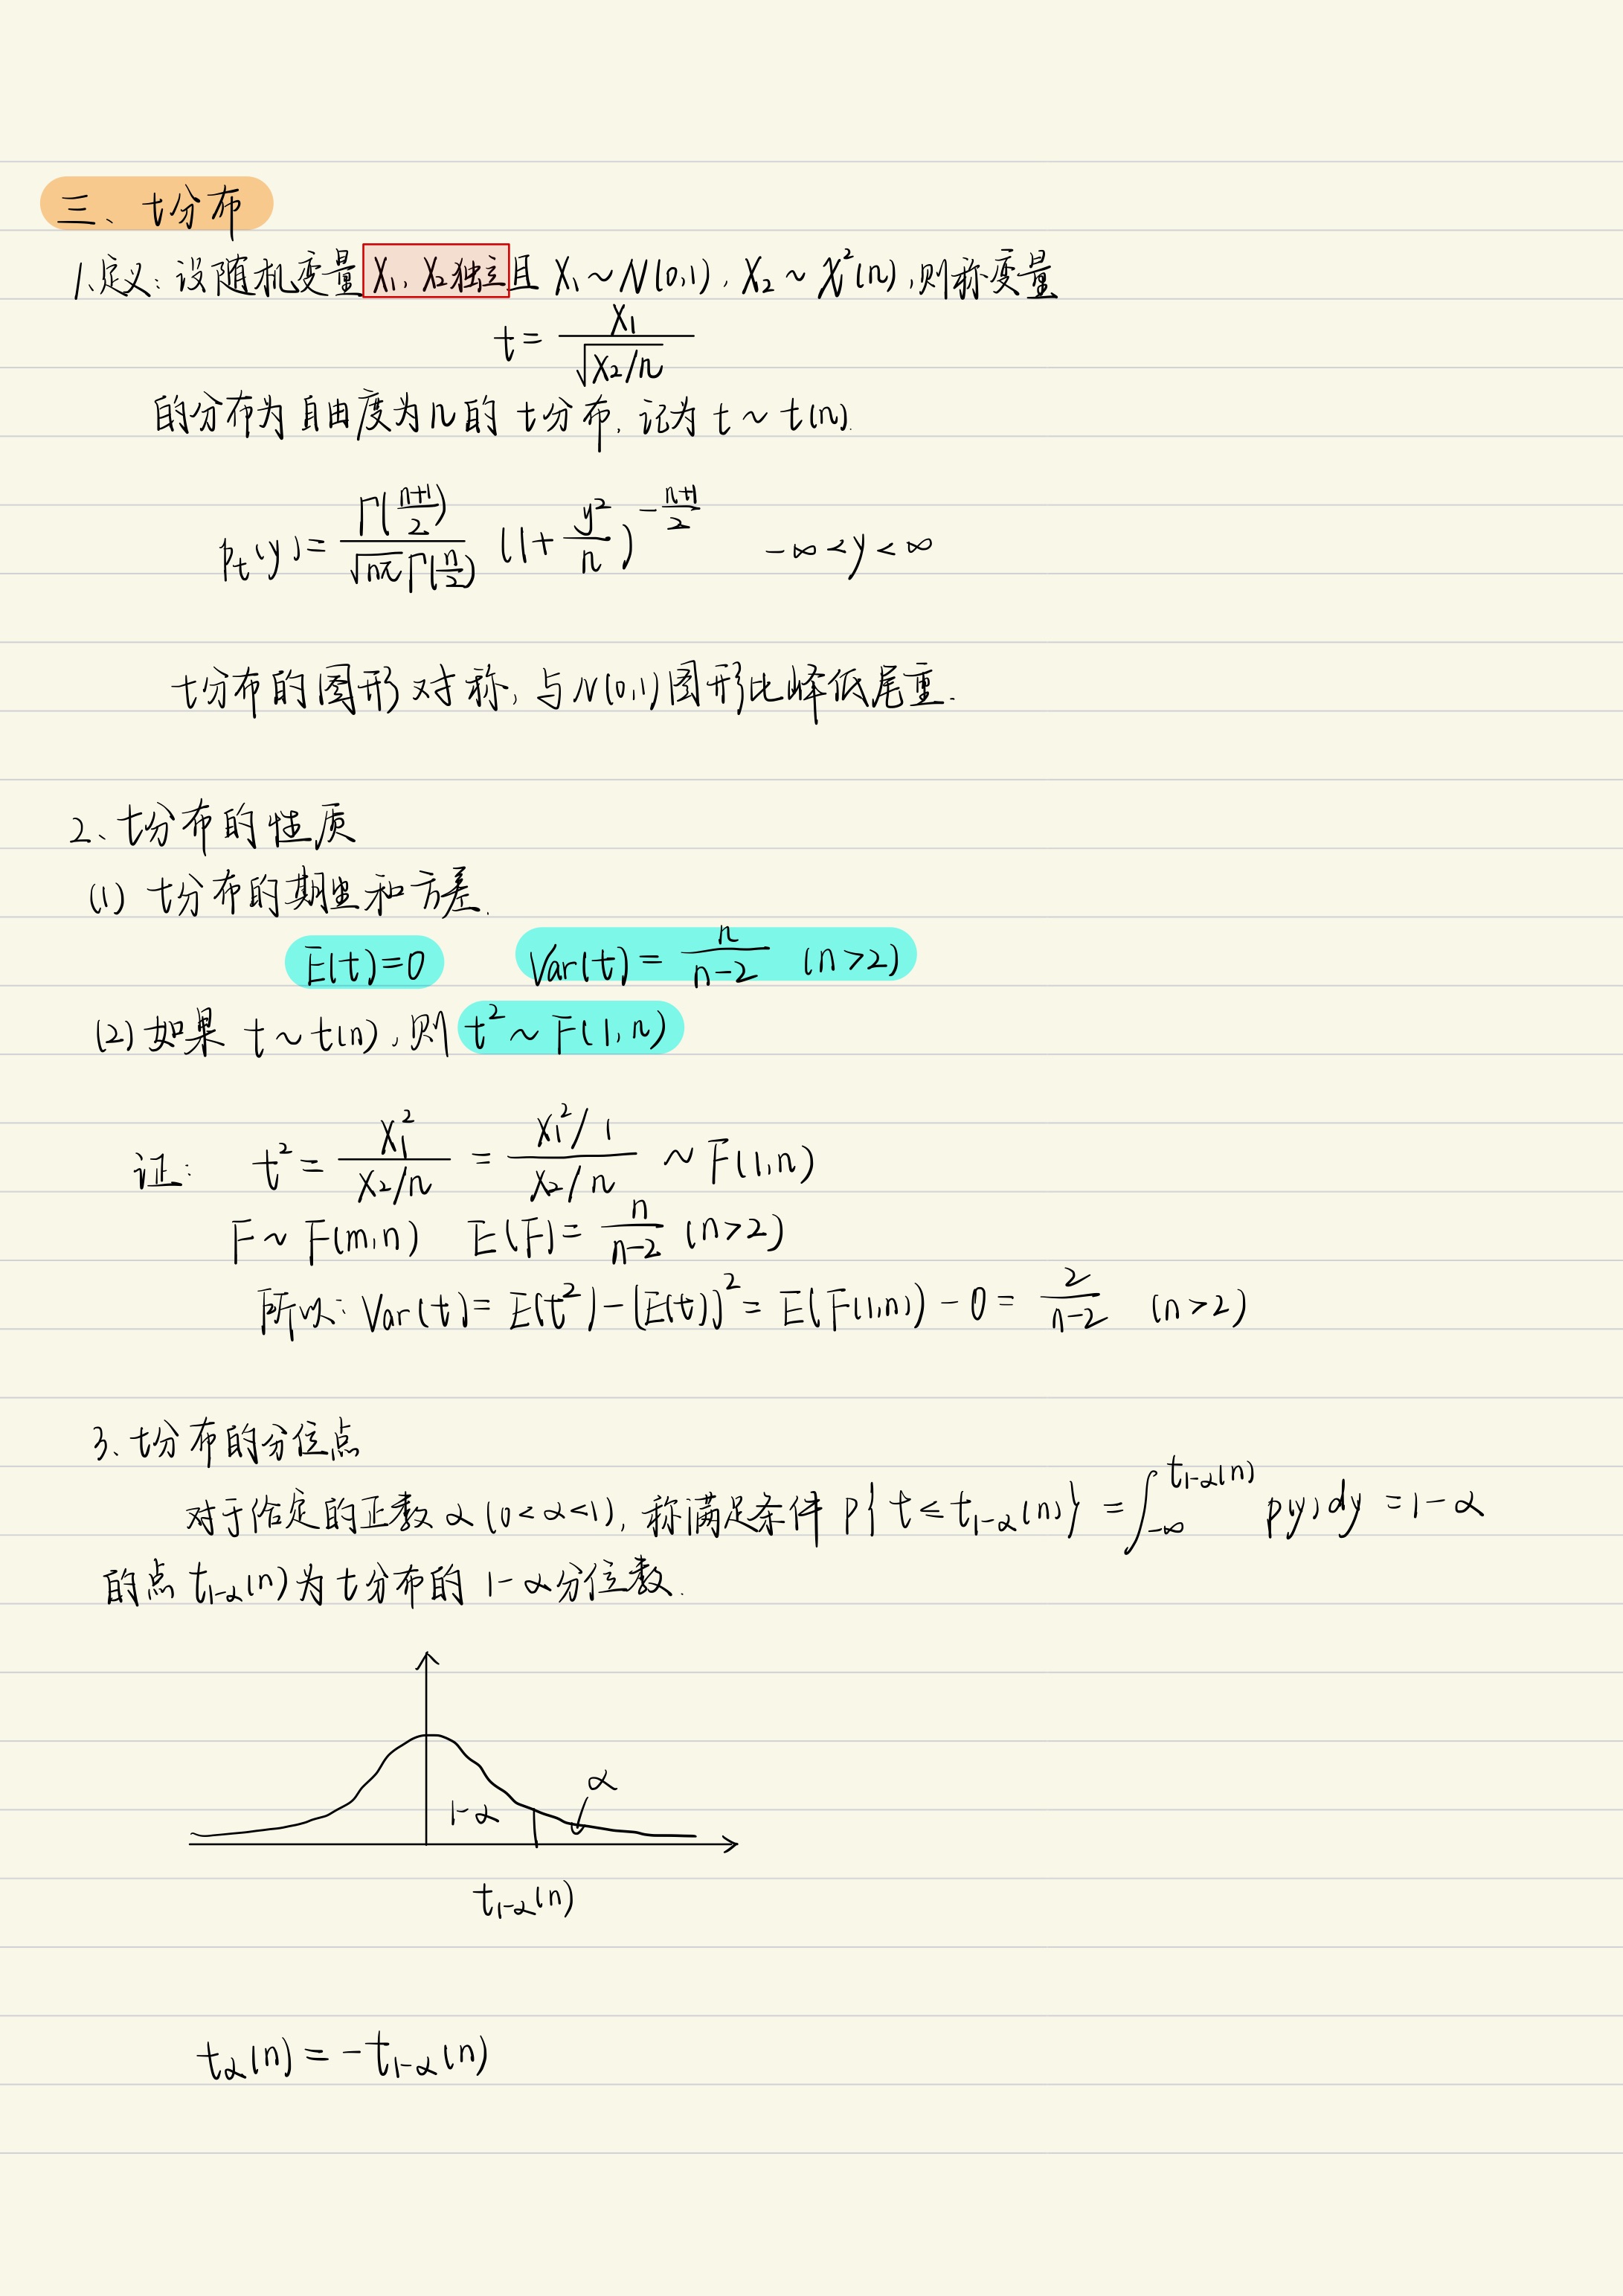 三、t分布
1、定义：设随机变量X₁，X₂独立且 X₁ ~ N(0,1)，X₂ ~ χ²(n)，则称变量
t = X₁ / √(X₂/n)
的分布为自由度为n的 t分布，记为 t ~ t(n).
p_t(y) = Γ((n+1)/2) / (√(nπ) Γ(n/2)) (1 + y²/n)^(-(n+1)/2)   -∞ < y < ∞
t分布的图形对称，与N(0,1)图形比峰低尾重.
2、t分布的性质
(1) t分布的期望和方差.
E(t)=0   Var(t) = n/(n-2) (n>2)
(2) 如果 t ~ t(n)，则 t² ~ F(1,n)
证： t² = X₁² / (X₂/n) = (X₁²/1) / (X₂/n) ~ F(1,n)
F ~ F(m,n)   E(F) = n/(n-2) (n>2)
所以：Var(t) = E(t²) - (E(t))² = E(F(1,n)) - 0 = 2/(n-2) (n>2)
3、t分布的分位点
对于给定的正数 α (0<α<1)，称满足条件 P{t ≤ t₁₋α(n)} = ∫_{-∞}^{t₁₋α(n)} p(y)dy = 1-α
的点 t₁₋α(n)为t分布的 1-α分位数.
α
1-α
t₁₋α(n)
tα(n) = -t₁₋α(n)